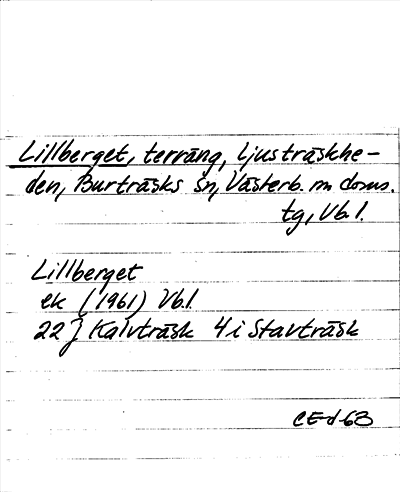 Lillberget, terräng, Ljusträskhe-
den, Burträsks sn, Västerb. m doms.
tg, Vb.l.
Lillberget
ek (1961) Vb.l.
22 J Kalvträsk 4 i Stavträsk
CE-d 68